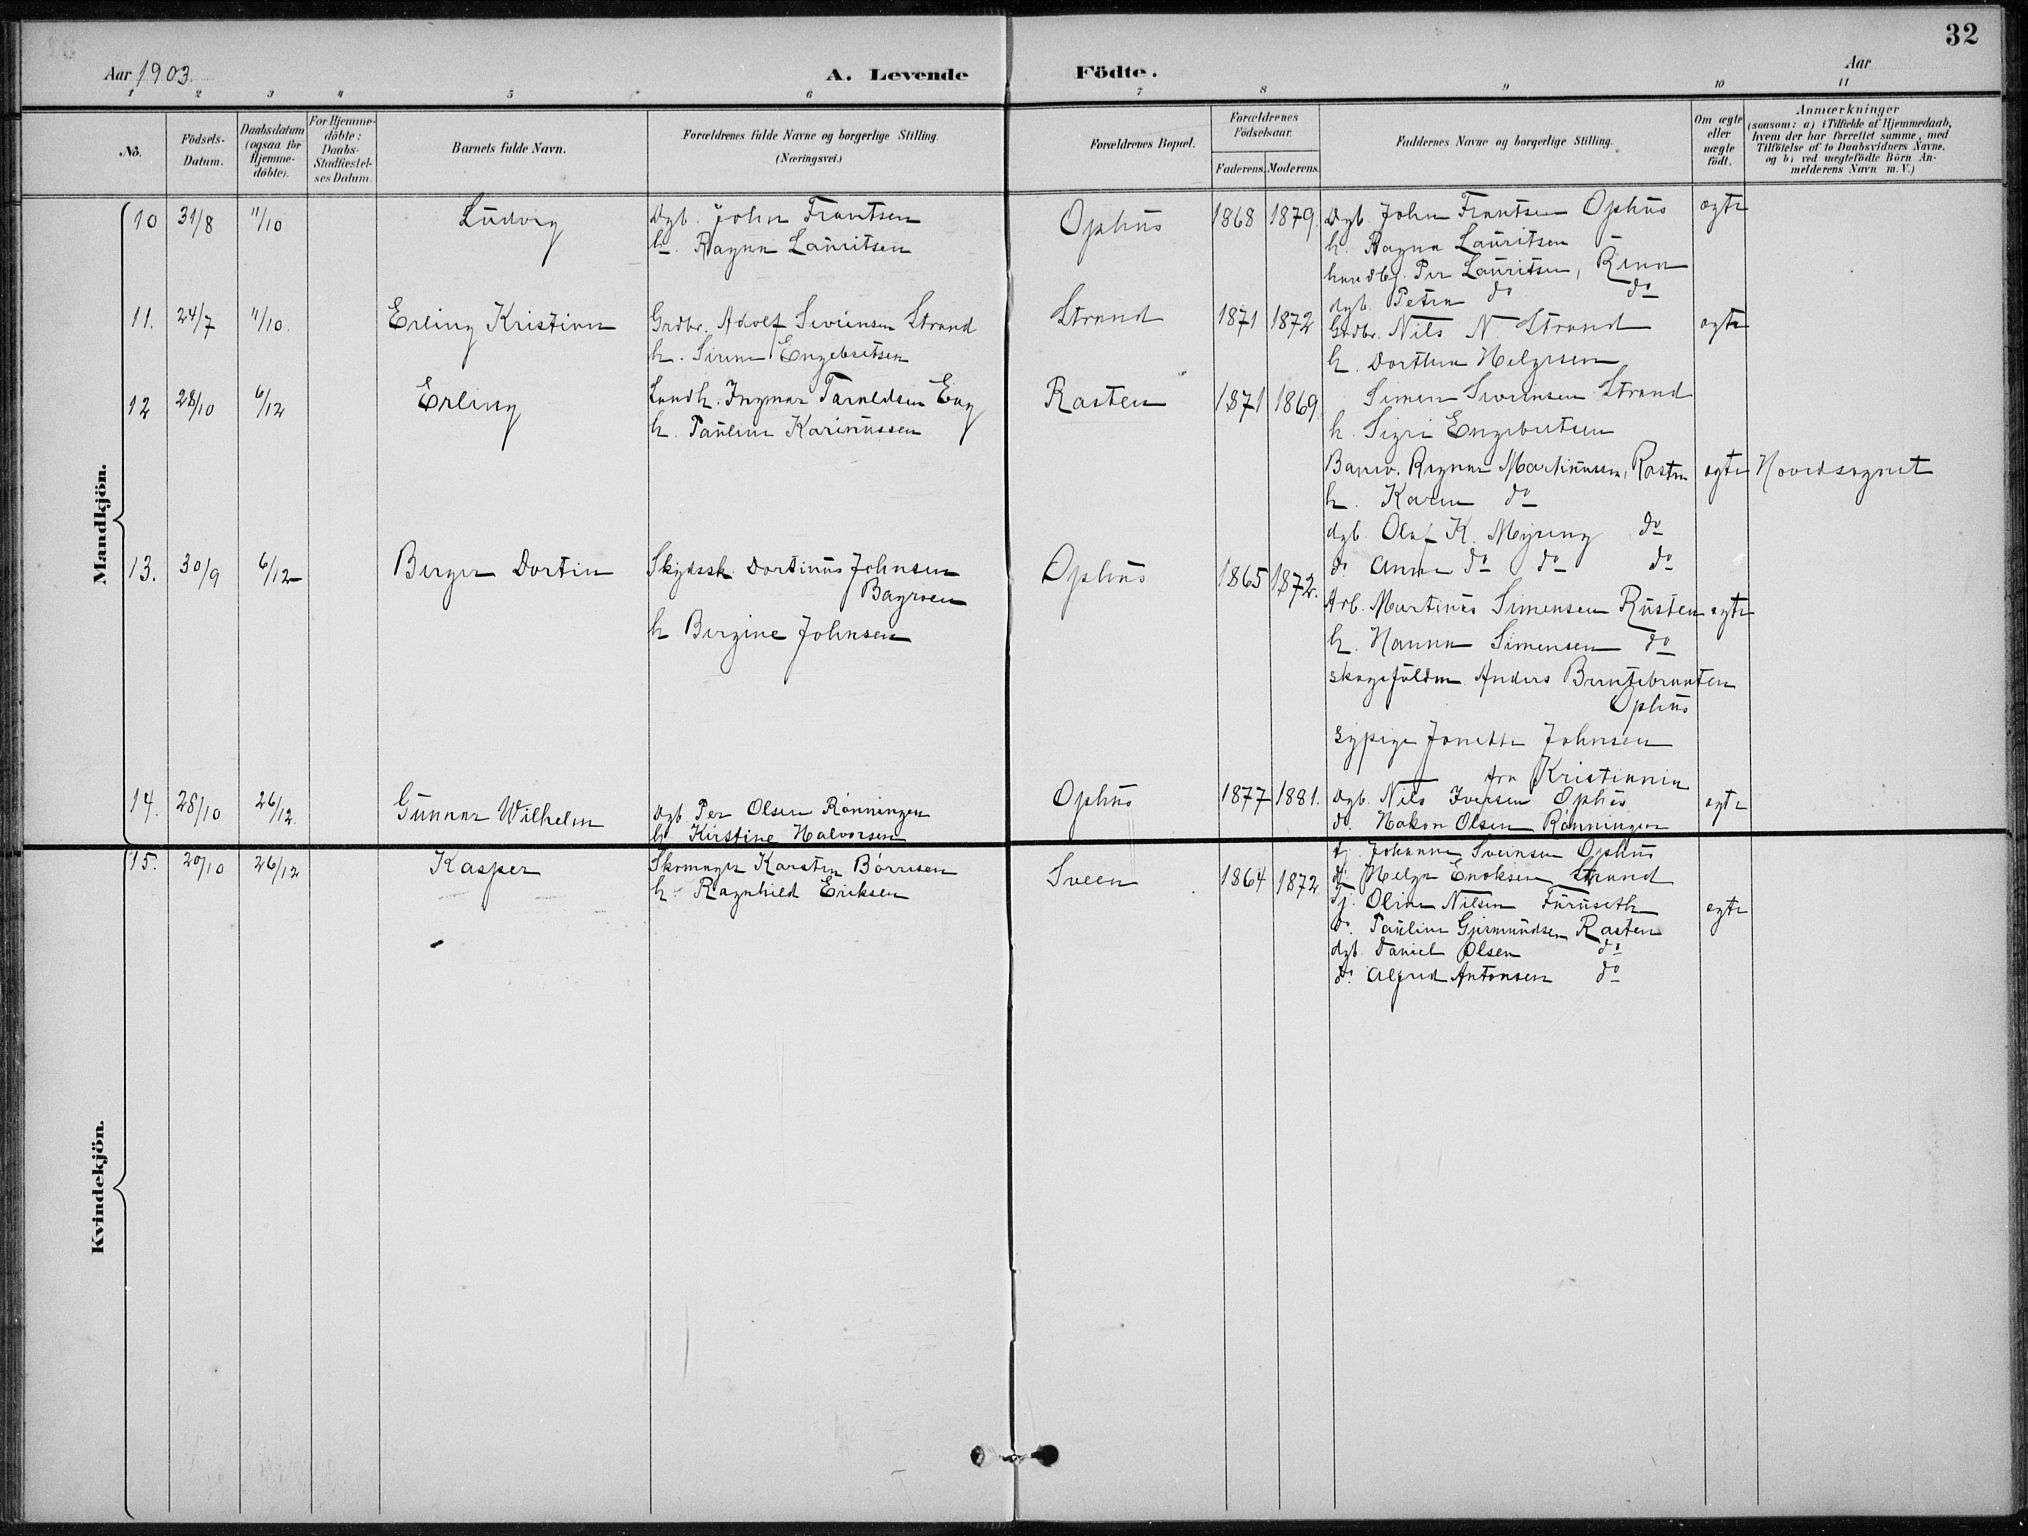 32
Aar 1903. A. Levende Födte. Aar
1 2 3 4 5 6 7 8 9 10 11
No. Födsels-Datum. Daabsdatum (ogsaa for Hjemmedöbte). For Hjemmedöbte: Daabs-Stadfæstelses Datum. Barnets fulde Navn. Forældrenes fulde Navne og borgerlige Stilling. (Næringsvei.) Forældrenes Bopæl. Forældrenes Födselsaar. Faderens. Moderens. Faddernes Navne og borgerlige Stilling. Om ægte eller uægte födt. Anmærkninger (saasom: a) i Tilfælde af Hjemmedaab, hvem der har forrettet samme, med Tilföielse af to Daabsvidners Navne, og b) ved uægtefödte Börn Anmelderens Navn m. V.)
Mandkjön.
10 31/8 11/10 Ludvig Dgb. John Frantsen Ophus 1868 1879. Dgb. John Frantsen Ophus ægte
h. Ragna Lauritsen h. Ragna Lauritsen
handbg. Per Lauritsen, Rena
dgb. Petra do do
11. 24/7 11/10. Erling Kristian Grdbr. Adolf Siversen Strand Strand 1871 1872 Grdbr. Nils N. Strand ægte
h. Sirine Engebretsen h. Dorthea Helgesen
Simen Siversen Strand
h. Sigri Engebretsen
12 28/10 6/12 Erling Landh. Ingmar Taraldsen Eng Rasten 1871 1869.
h. Pauline Karinussen
Banev. Ragnar Martinussen, Rasten ægte Hovedsognet
h. Karen do
dgb. Olaf K. Myreng do
do Anna do do do
13. 30/9 6/12 Birger Dortin Skydssk. Dortinus Johnsen Ophus 1865 1872.
Bagroen
h. Bergine Johnsen
Arb. Martinus Simensen Rusten ægte
h. Hanna Simensen do
skogsfuldm. Anders Berntebraaten
Ophus
sypige Jonette Johnsen
fra Kristiania
14. 28/10 26/12. Gunnar Wilhelm Dgb. Per Olsen Rønningen Ophus 1877 1881. Dgb. Nils Iversen Ophus ægte
h. Kirstine Halvorsen do. Hakon Olsen Rønningen
tj. Johanne Sveinsen Ophus
tj. Helga Enoksen Strand
Kvindekjön.
15. 20/10 26/12 Kasper Skomager Karsten Børresen Sveen 1864 1872 tj. Oline Nilsen Furuseth ægte
h. Ragnhild Eriksen do. Pauline Gjermundsen Rasten
dgb. Daniel Olsen do
do. Alfred Antonsen do